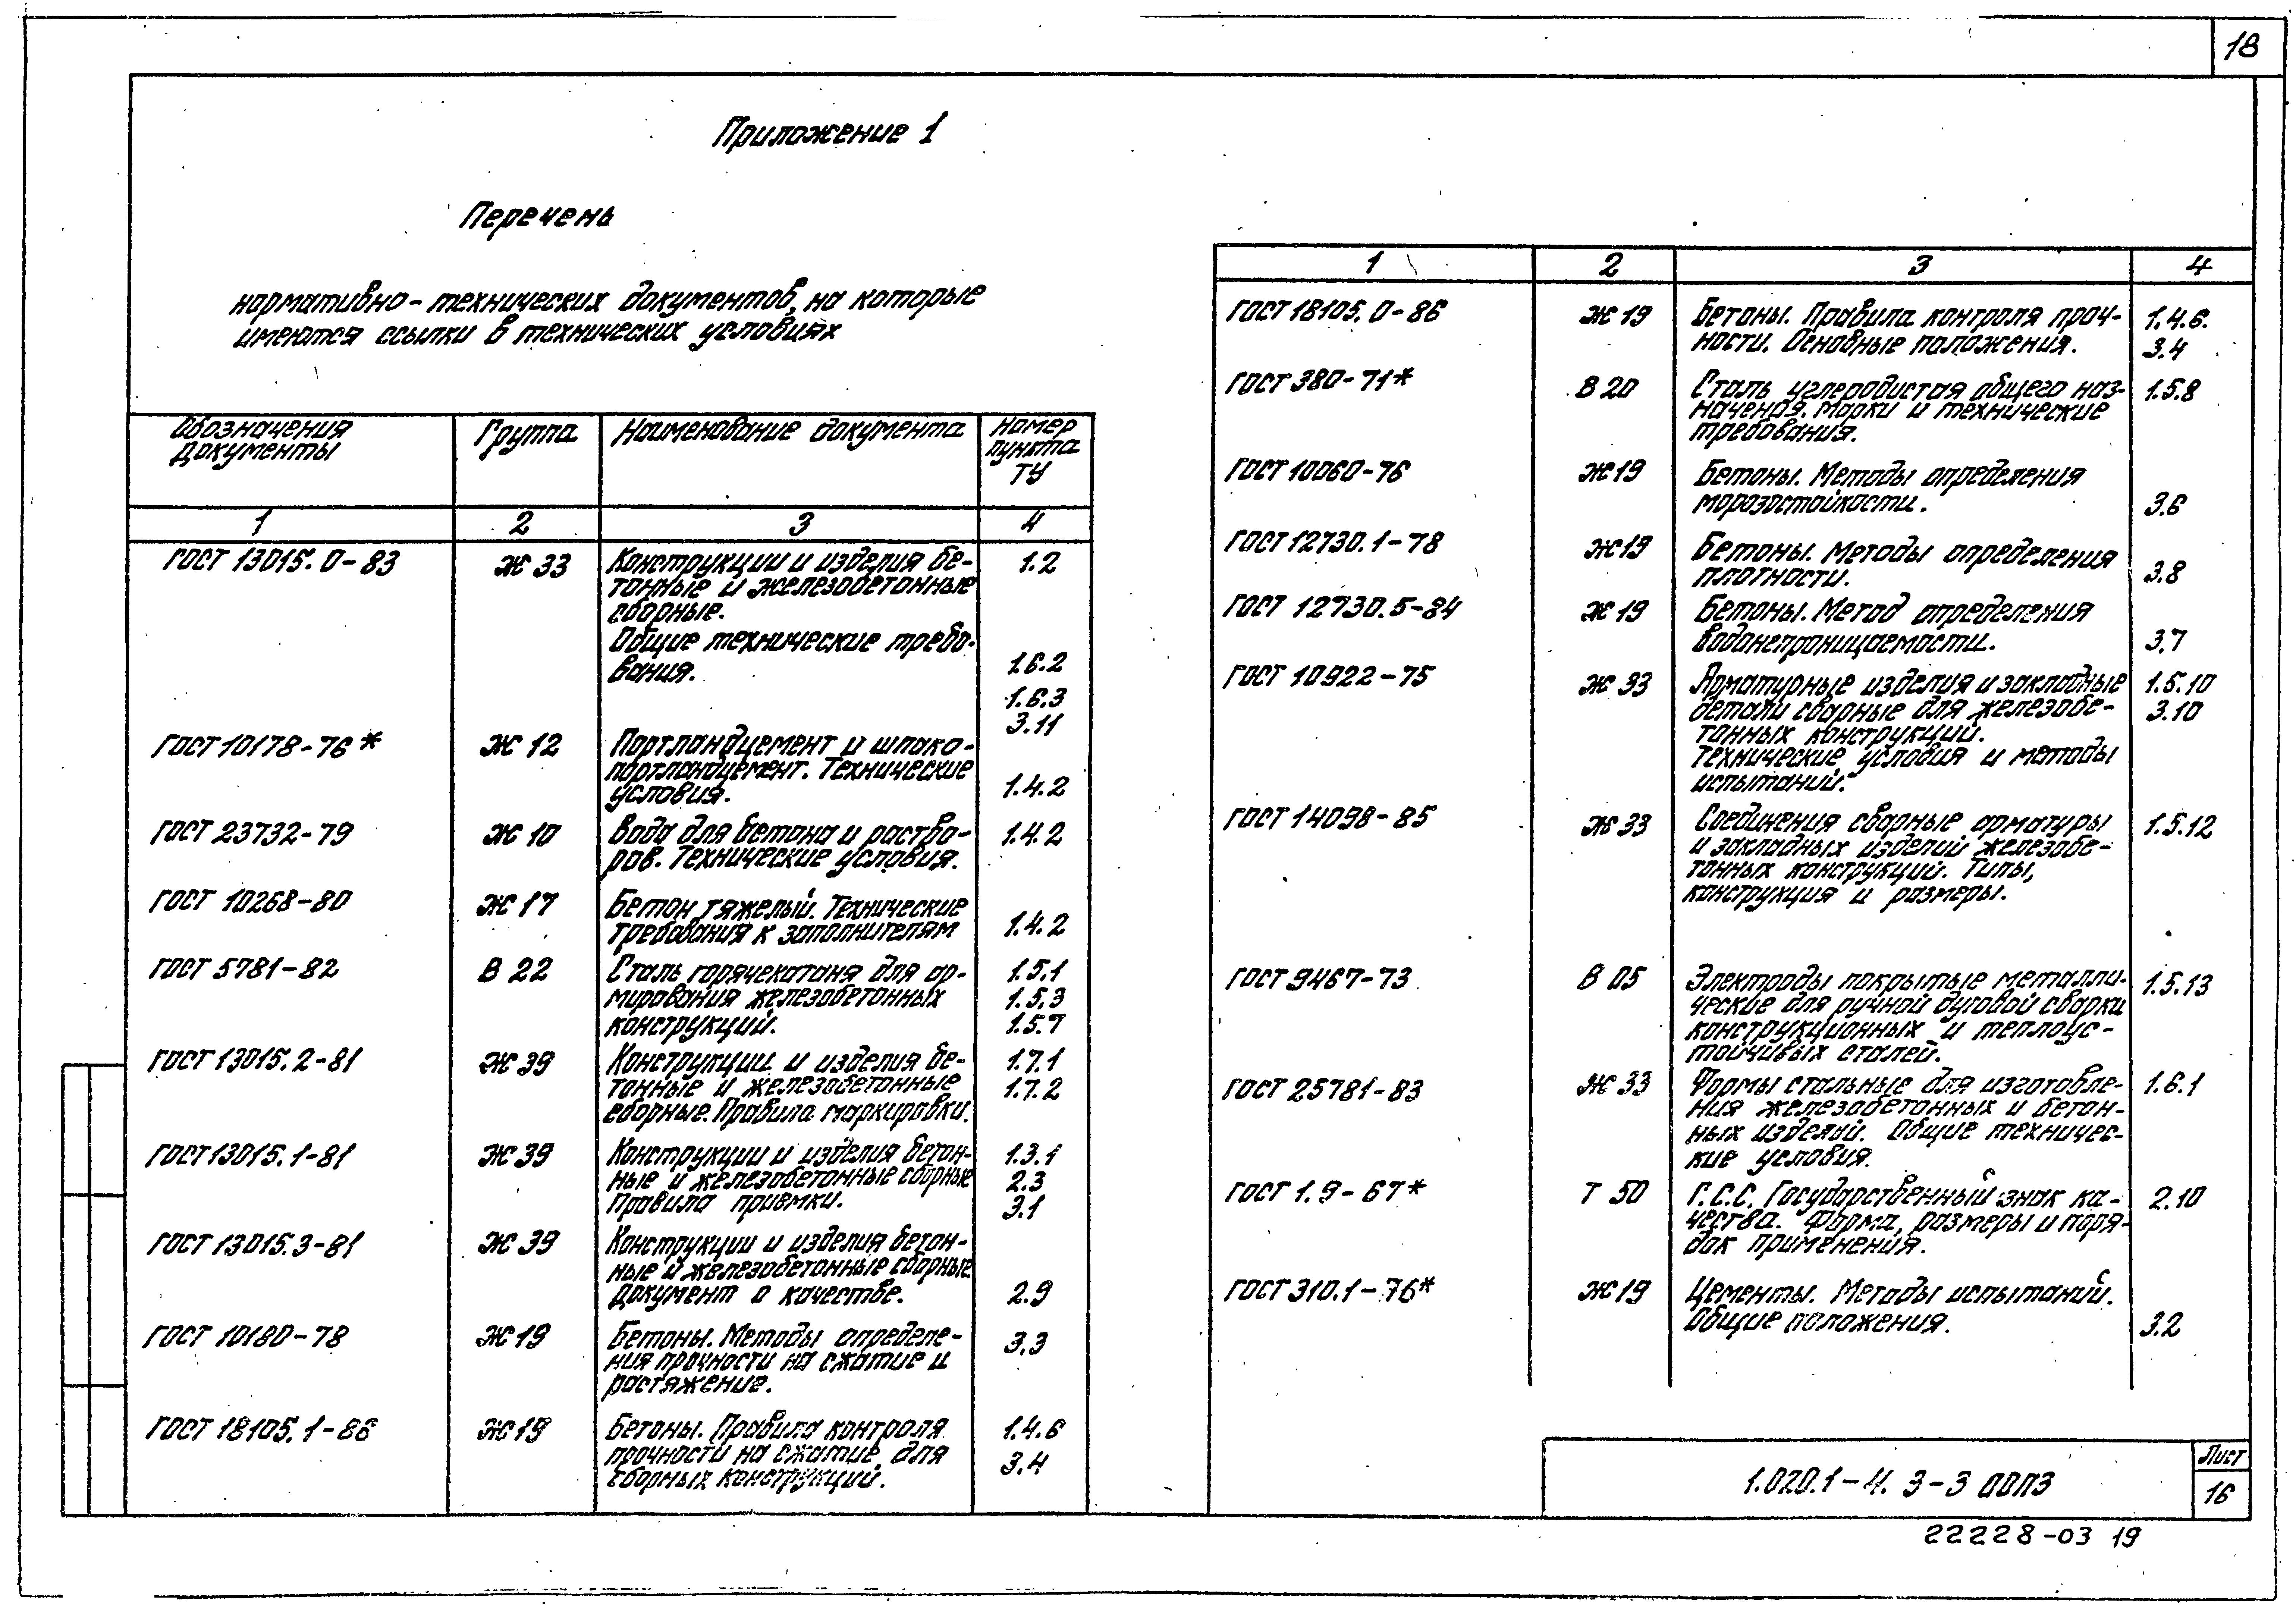 18
Приложение 1
Перечень
нормативно-технических документов, на которые
имеются ссылки в технических условиях
Обозначения
документы
Группа
Наименование документа
Номер
пункта
ТУ
1 2 3 4
ГОСТ 13015.0-83 Ж33 Конструкции и изделия бе- 1.2
тонные и железобетонные
сборные.
Общие технические требо-
вания. 1.6.2
1.6.3
3.11
ГОСТ 10178-76* Ж12 Портландцемент и шлако-
портландцемент. Технические
условия. 1.4.2
ГОСТ 23732-79 Ж10 Вода для бетона и раство- 1.4.2
ров. Технические условия.
ГОСТ 10268-80 Ж17 Бетон тяжелый. Технические
требования к заполнителям 1.4.2
ГОСТ 5781-82 В22 Сталь горячекатаня для ар- 1.5.1
мирования железобетонных 1.5.3
конструкций. 1.5.7
ГОСТ 13015.2-81 Ж39 Конструкции и изделия бе- 1.7.1
тонные и железобетонные 1.7.2
сборные. Правила маркировки.
ГОСТ 13015.1-81 Ж39 Конструкции и изделия бетон- 1.3.1
ные и железобетонные сборные 2.3
Правила приемки. 3.1
ГОСТ 13015.3-81 Ж39 Конструкции и изделия бетон-
ные и железобетонные сборные
Документ о качестве. 2.9
ГОСТ 10180-78 Ж19 Бетоны. Методы определе- 3.3
ния прочности на сжатие и
растяжение.
ГОСТ 18105.1-86 Ж19 Бетоны. Правила контроля 1.4.6
прочности на сжатие для 3.4
сборных конструкций.
1 2 3 4
ГОСТ 18105.0-86 Ж19 Бетоны. Правила контроля проч- 1.4.6.
ности. Основные положения. 3.4
ГОСТ 380-71* В20 Сталь углеродистая общего наз- 1.5.8
начения. Марки и технические
требования.
ГОСТ 10060-76 Ж19 Бетоны. Методы определения
морозостойкости. 3.6
ГОСТ 12730.1-78 Ж19 Бетоны. Методы определения
плотности. 3.8
ГОСТ 12730.5-84 Ж19 Бетоны. Метод определения
водонепроницаемости. 3.7
ГОСТ 10922-75 Ж33 Арматурные изделия и закладные 1.5.10
детали сварные для железобе- 3.10
тонных конструкций.
Технические условия и методы
испытаний.
ГОСТ 14098-85 Ж33 Соединения сварные арматуры 1.5.12
и закладных изделий железобе-
тонных конструкций. Типы,
конструкция и размеры.
ГОСТ 9467-73 В05 Электроды покрытые металли- 1.5.13
ческие для ручной дуговой сварки
конструкционных и теплоус-
тойчивых сталей.
ГОСТ 25781-83 Ж33 Формы стальные для изготовле- 1.6.1
ния железобетонных и бетон-
ных изделий. Общие техничес-
кие условия.
ГОСТ 1.9-67* Т50 Г.С.С. Государственный знак ка- 2.10
чества. Форма, размеры и поря-
док применения.
ГОСТ 310.1-76* Ж19 Цементы. Методы испытаний.
Общие положения. 3.2
1.020.1-4. 3-3 00ПЗ
Лист
16
22228-03 19